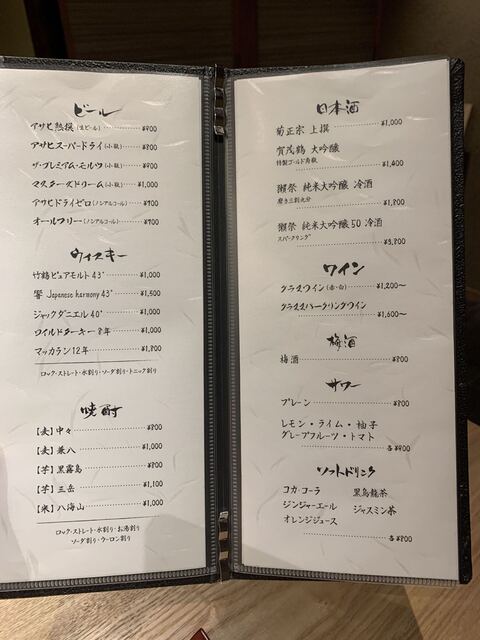 ビール
アサヒ熟撰(生ビール) ¥900
アサヒスーパードライ(小瓶) ¥800
ザ・プレミアム・モルツ(小瓶) ¥900
マスターズドリーム(小瓶) ¥1,000
アサヒドライゼロ(ノンアルコール) ¥700
オールフリー(ノンアルコール) ¥700
ウィスキー
竹鶴ピュアモルト 43° ¥1,000
響 Japanese harmony 43° ¥1,500
ジャックダニエル 40° ¥1,000
ワイルドターキー 8年 ¥1,000
マッカラン 12年 ¥1,800
ロック・ストレート・水割り・ソーダ割り・トニック割り
焼酎
【麦】中々 ¥800
【麦】兼八 ¥1,000
【芋】黒霧島 ¥800
【芋】三岳 ¥1,100
【米】八海山 ¥1,000
ロック・ストレート・水割り・お湯割り
ソーダ割り・ウーロン割り
日本酒
菊正宗 上撰 ¥1,000
賀茂鶴 大吟醸
特製ゴールド角瓶 ¥1,400
獺祭 純米大吟醸 冷酒
磨き三割九分 ¥1,800
獺祭 純米大吟醸 50 冷酒
スパークリング ¥3,800
ワイン
グラスワイン(赤・白) ¥1,200~
グラススパークリングワイン
¥1,600~
梅酒
梅酒 ¥800
サワー
プレーン ¥800
レモン・ライム・柚子
グレープフルーツ・トマト
各 ¥900
ソフトドリンク
コカ・コーラ 黒烏龍茶
ジンジャーエール ジャスミン茶
オレンジジュース
各 ¥800